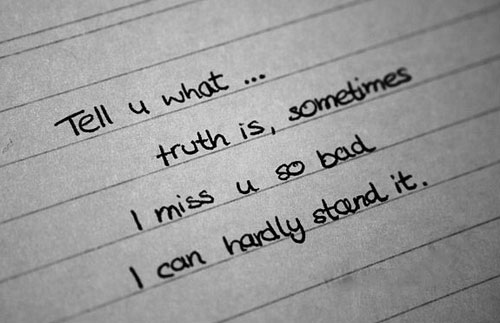 Tell u what ...
truth is, sometimes
I miss u so bad
I can hardly stand it.